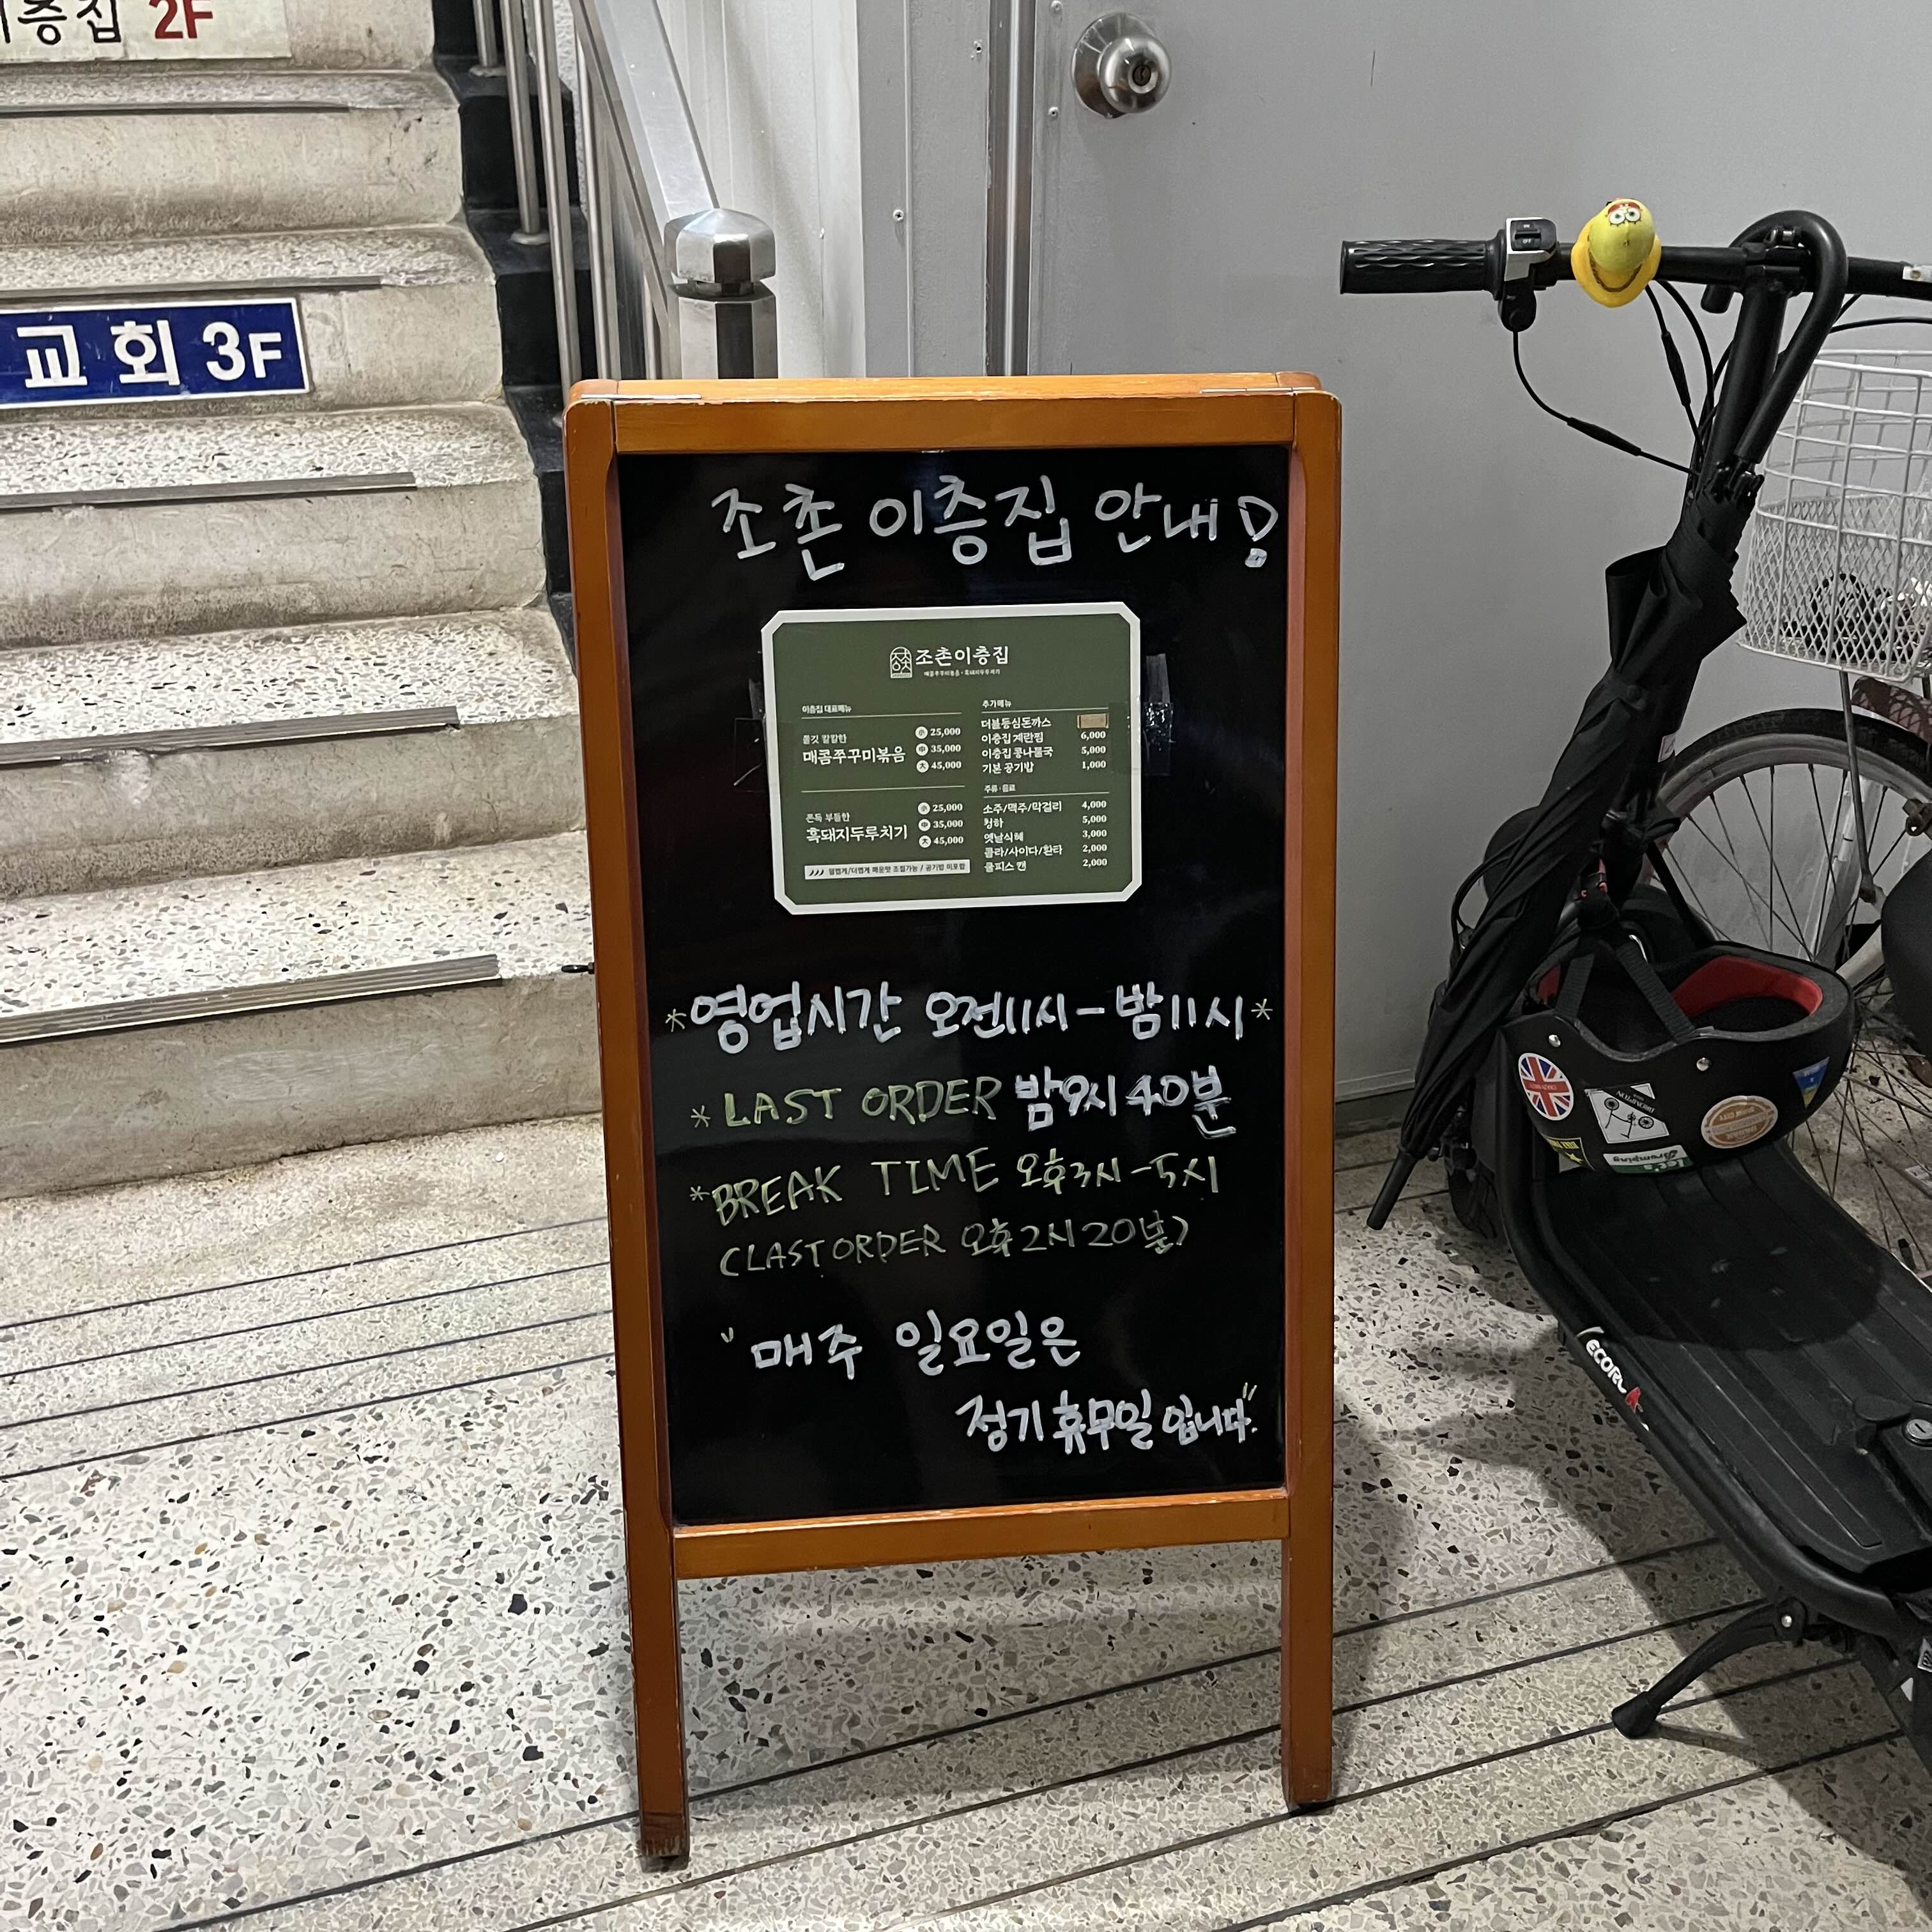 이층집 2F
교회 3F
조촌 이층집 안내!
조촌이층집
매콤쭈꾸미볶음 · 흑돼지두루치기
이층집 대표메뉴
쫄깃 칼칼한
매콤쭈꾸미볶음
小 25,000
中 35,000
大 45,000
쫀득 부들한
흑돼지두루치기
小 25,000
中 35,000
大 45,000
덜맵게/더맵게 매운맛 조절가능 / 공기밥 미포함
추가메뉴
더블등심돈까스
이층집 계란찜 6,000
이층집 콩나물국 5,000
기본 공기밥 1,000
주류·음료
소주/맥주/막걸리 4,000
청하 5,000
옛날식혜 3,000
콜라/사이다/환타 2,000
쿨피스 캔 2,000
*영업시간 오전11시-밤11시*
* LAST ORDER 밤9시40분
*BREAK TIME 오후3시-5시
(LAST ORDER 오후2시20분)
" 매주 일요일은
정기휴무일입니다."
BROMPTON